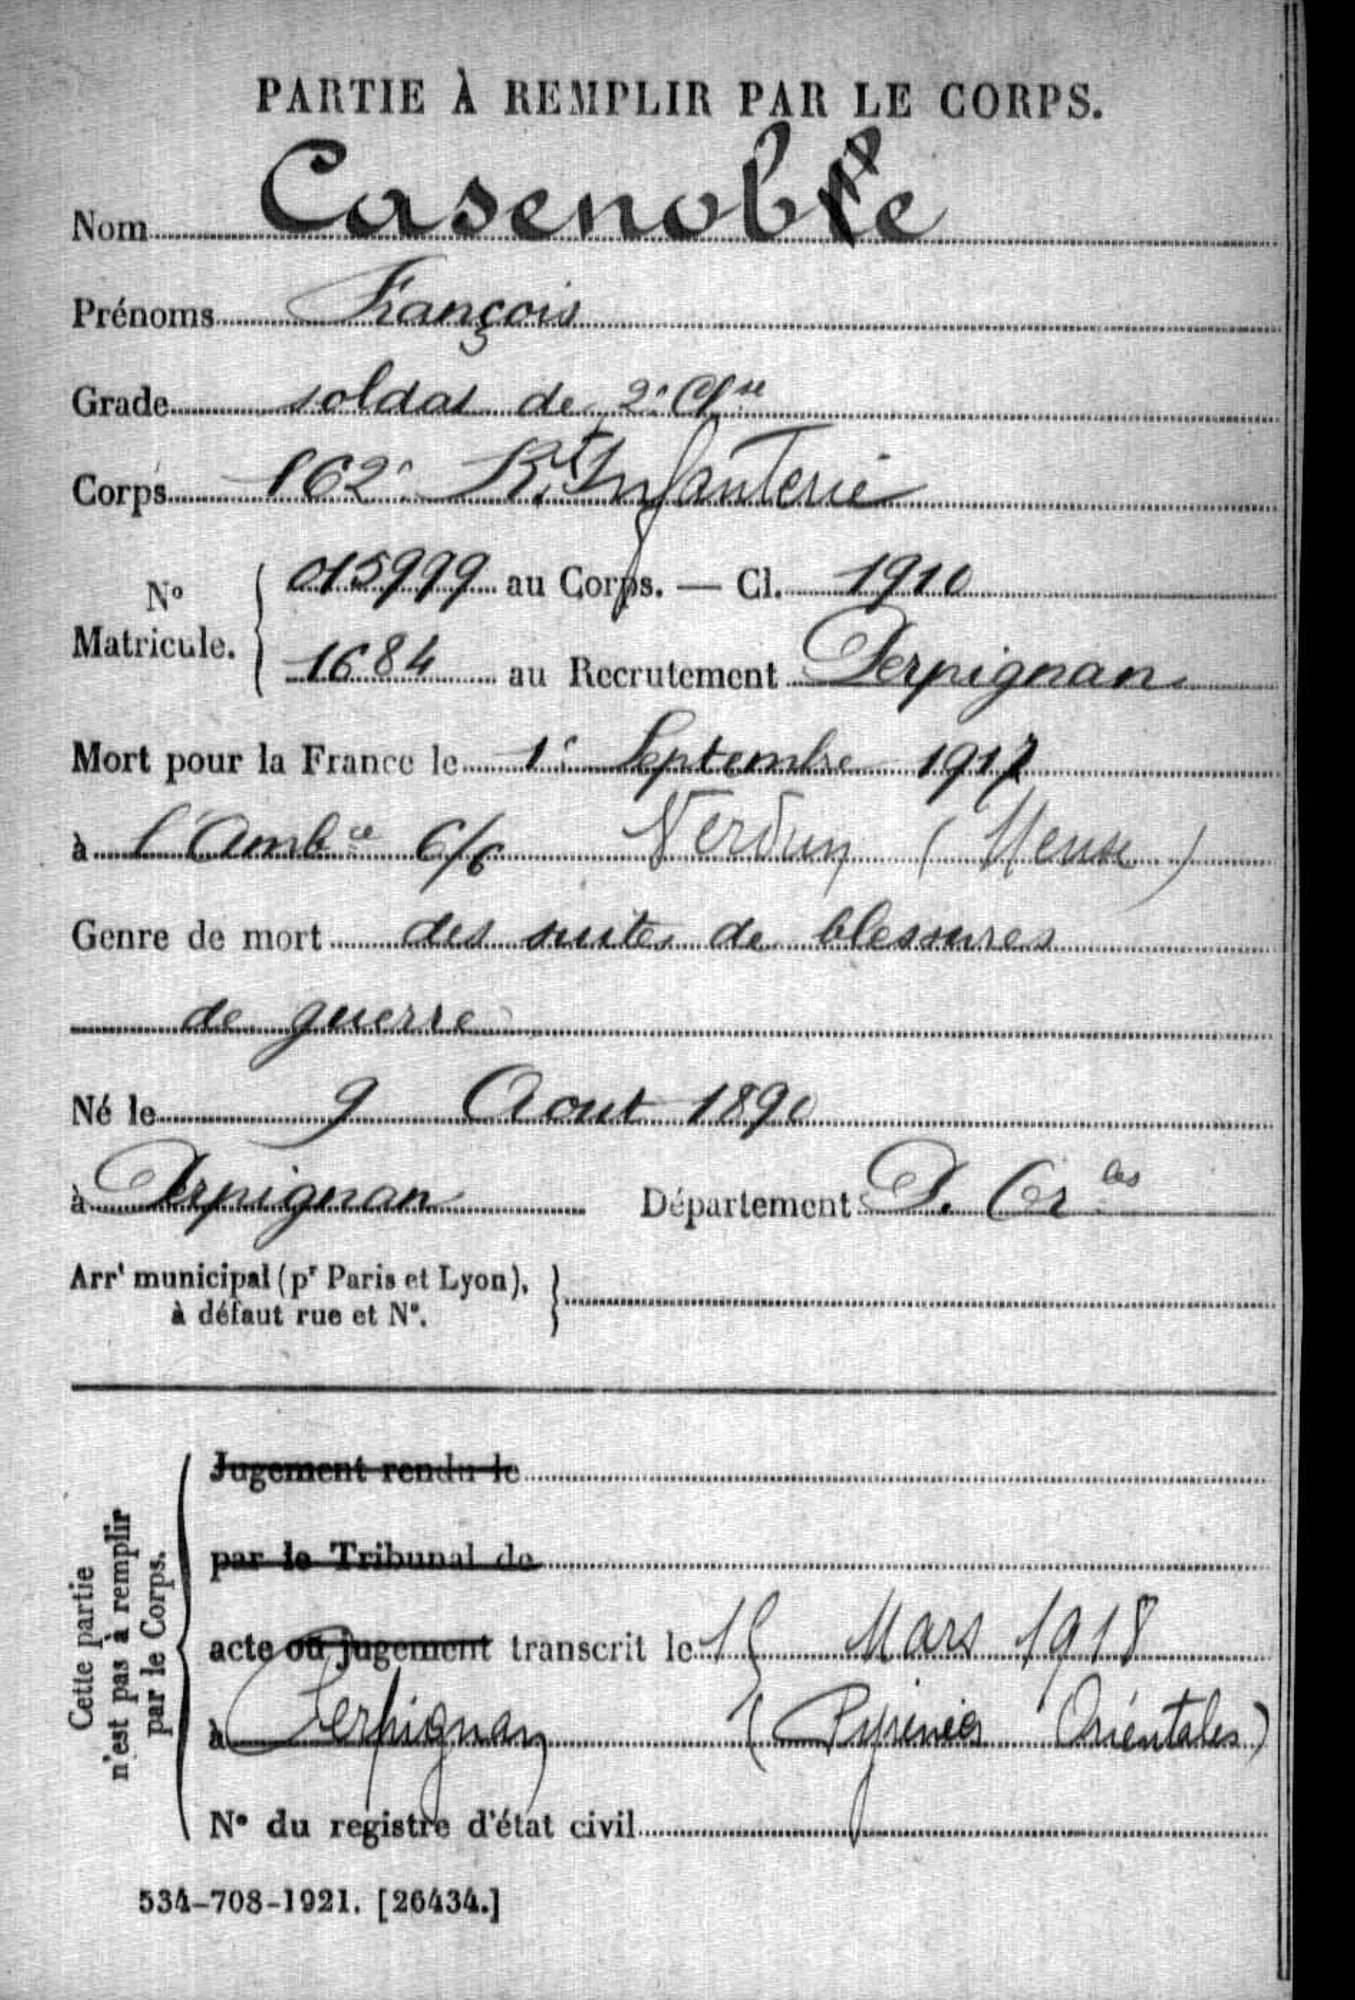 PARTIE À REMPLIR PAR LE CORPS.
Nom Casenobe
Prénoms François
Grade soldat de 2e Clsse
Corps 162e Rt Infanterie
No Matricule. 015999 au Corps. — Cl. 1910
1684 au Recrutement Perpignan
Mort pour la France le 1e Septembre 1917
à l'Ambce 6/6 Verdun (Meuse)
Genre de mort des suites de blessures
de guerre
Né le 9 Aout 1890
à Perpignan Département P. Orles
Arrt municipal (pr Paris et Lyon),
à défaut rue et No.
Cette partie
n'est pas à remplir
par le Corps.
Jugement rendu le
par le Tribunal de
acte ou jugement transcrit le 15 Mars 1918
à Perpignan (Pyrénées Orientales)
No du registre d'état civil
534-708-1921. [26434.]